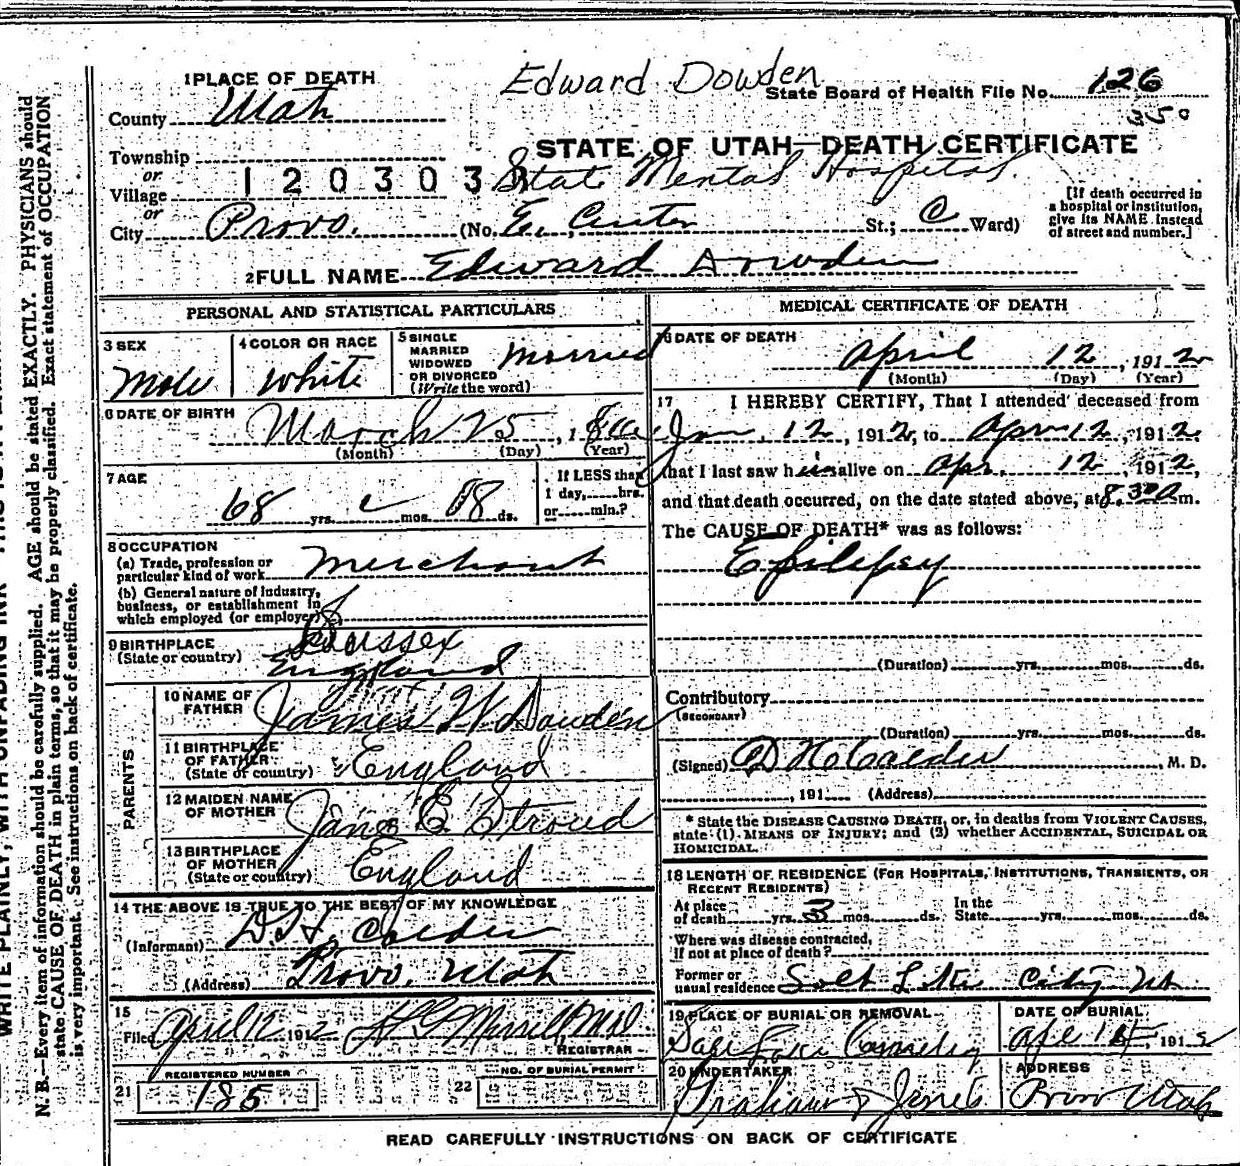 WRITE PLAINLY, WITH UNFADING INK
N. B.—Every item of information should be carefully supplied. AGE should be stated EXACTLY. PHYSICIANS should
state CAUSE OF DEATH in plain terms, so that it may be properly classified. Exact statement of OCCUPATION
is very important. See instructions on back of certificate.
Edward Dowden
1 PLACE OF DEATH
State Board of Health File No. 126
350
County Utah
STATE OF UTAH—DEATH CERTIFICATE
Township
or
Village
120303
State Mental Hospital
or
City Provo. (No. E. Center St.; Ward)
[If death occurred in
a hospital or institution,
give its NAME instead
of street and number.]
2 FULL NAME Edward Dowden
PERSONAL AND STATISTICAL PARTICULARS
3 SEX
Male
4 COLOR OR RACE
White
5 SINGLE
MARRIED
WIDOWED
OR DIVORCED
(Write the word)
Married
6 DATE OF BIRTH
March 25, 1
(Month) (Day) (Year)
7 AGE
68 yrs. mos. 18 ds.
If LESS than
1 day, hrs.
or min.?
8 OCCUPATION
(a) Trade, profession or
particular kind of work merchant
(b) General nature of industry,
business, or establishment in
which employed (or employer)
9 BIRTHPLACE
(State or country)
Sussex
England
PARENTS
10 NAME OF
FATHER
James W. Dowden
11 BIRTHPLACE
OF FATHER
(State or country)
England
12 MAIDEN NAME
OF MOTHER
Jane E. Stroud
13 BIRTHPLACE
OF MOTHER
(State or country)
England
14 THE ABOVE IS TRUE TO THE BEST OF MY KNOWLEDGE
(Informant) D. H. Calder
(Address) Provo, Utah
15
Filed April 12 1912
REGISTRAR
REGISTERED NUMBER
21 185
NO. OF BURIAL PERMIT
22
MEDICAL CERTIFICATE OF DEATH
16 DATE OF DEATH
April 12, 1912
(Month) (Day) (Year)
17 I HEREBY CERTIFY, That I attended deceased from
Jan. 12, 1912, to Apr 12, 1912.
that I last saw him alive on Apr. 12, 1912,
and that death occurred, on the date stated above, at 8.30 a m.
The CAUSE OF DEATH* was as follows:
Epilepsy
(Duration) yrs. mos. ds.
Contributory
(SECONDARY)
(Duration) yrs. mos. ds.
(Signed) D H Calder, M. D.
, 191 (Address)
* State the DISEASE CAUSING DEATH, or, in deaths from VIOLENT CAUSES,
state (1) MEANS OF INJURY; and (2) whether ACCIDENTAL, SUICIDAL OR
HOMICIDAL.
18 LENGTH OF RESIDENCE (FOR HOSPITALS, INSTITUTIONS, TRANSIENTS, OR
RECENT RESIDENTS)
At place
of death yrs. 3 mos. ds.
In the
State yrs. mos. ds.
Where was disease contracted,
if not at place of death?
Former or
usual residence Salt Lake City Ut
19 PLACE OF BURIAL OR REMOVAL
Salt Lake Cemetery
DATE OF BURIAL
Apl 14 1912
20 UNDERTAKER
Graham & Jones
ADDRESS
Provo Utah
READ CAREFULLY INSTRUCTIONS ON BACK OF CERTIFICATE